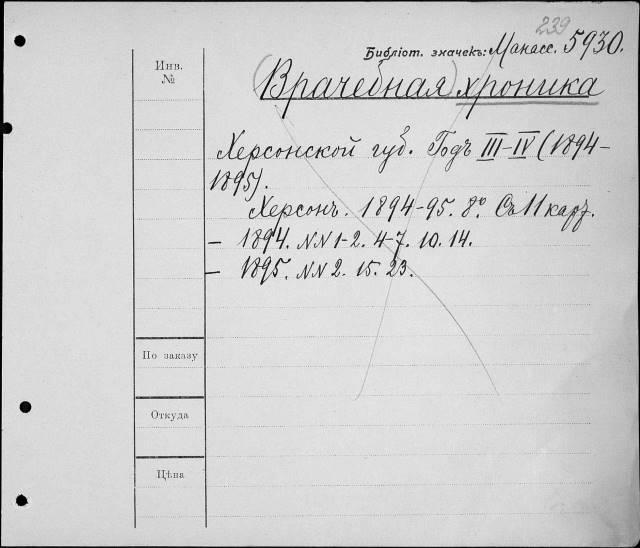 239
Библіот. значекъ: Манасс. 5930.
Инв.
№
(Врачебная) хроника
Херсонской губ. Годъ III–IV (1894–
1895).
Херсонъ. 1894-95. 8º Съ 11 карт.
— 1894. NN 1-2. 4-7. 10. 14.
— 1895. NN 2. 15. 23.
По заказу
Откуда
Цѣна